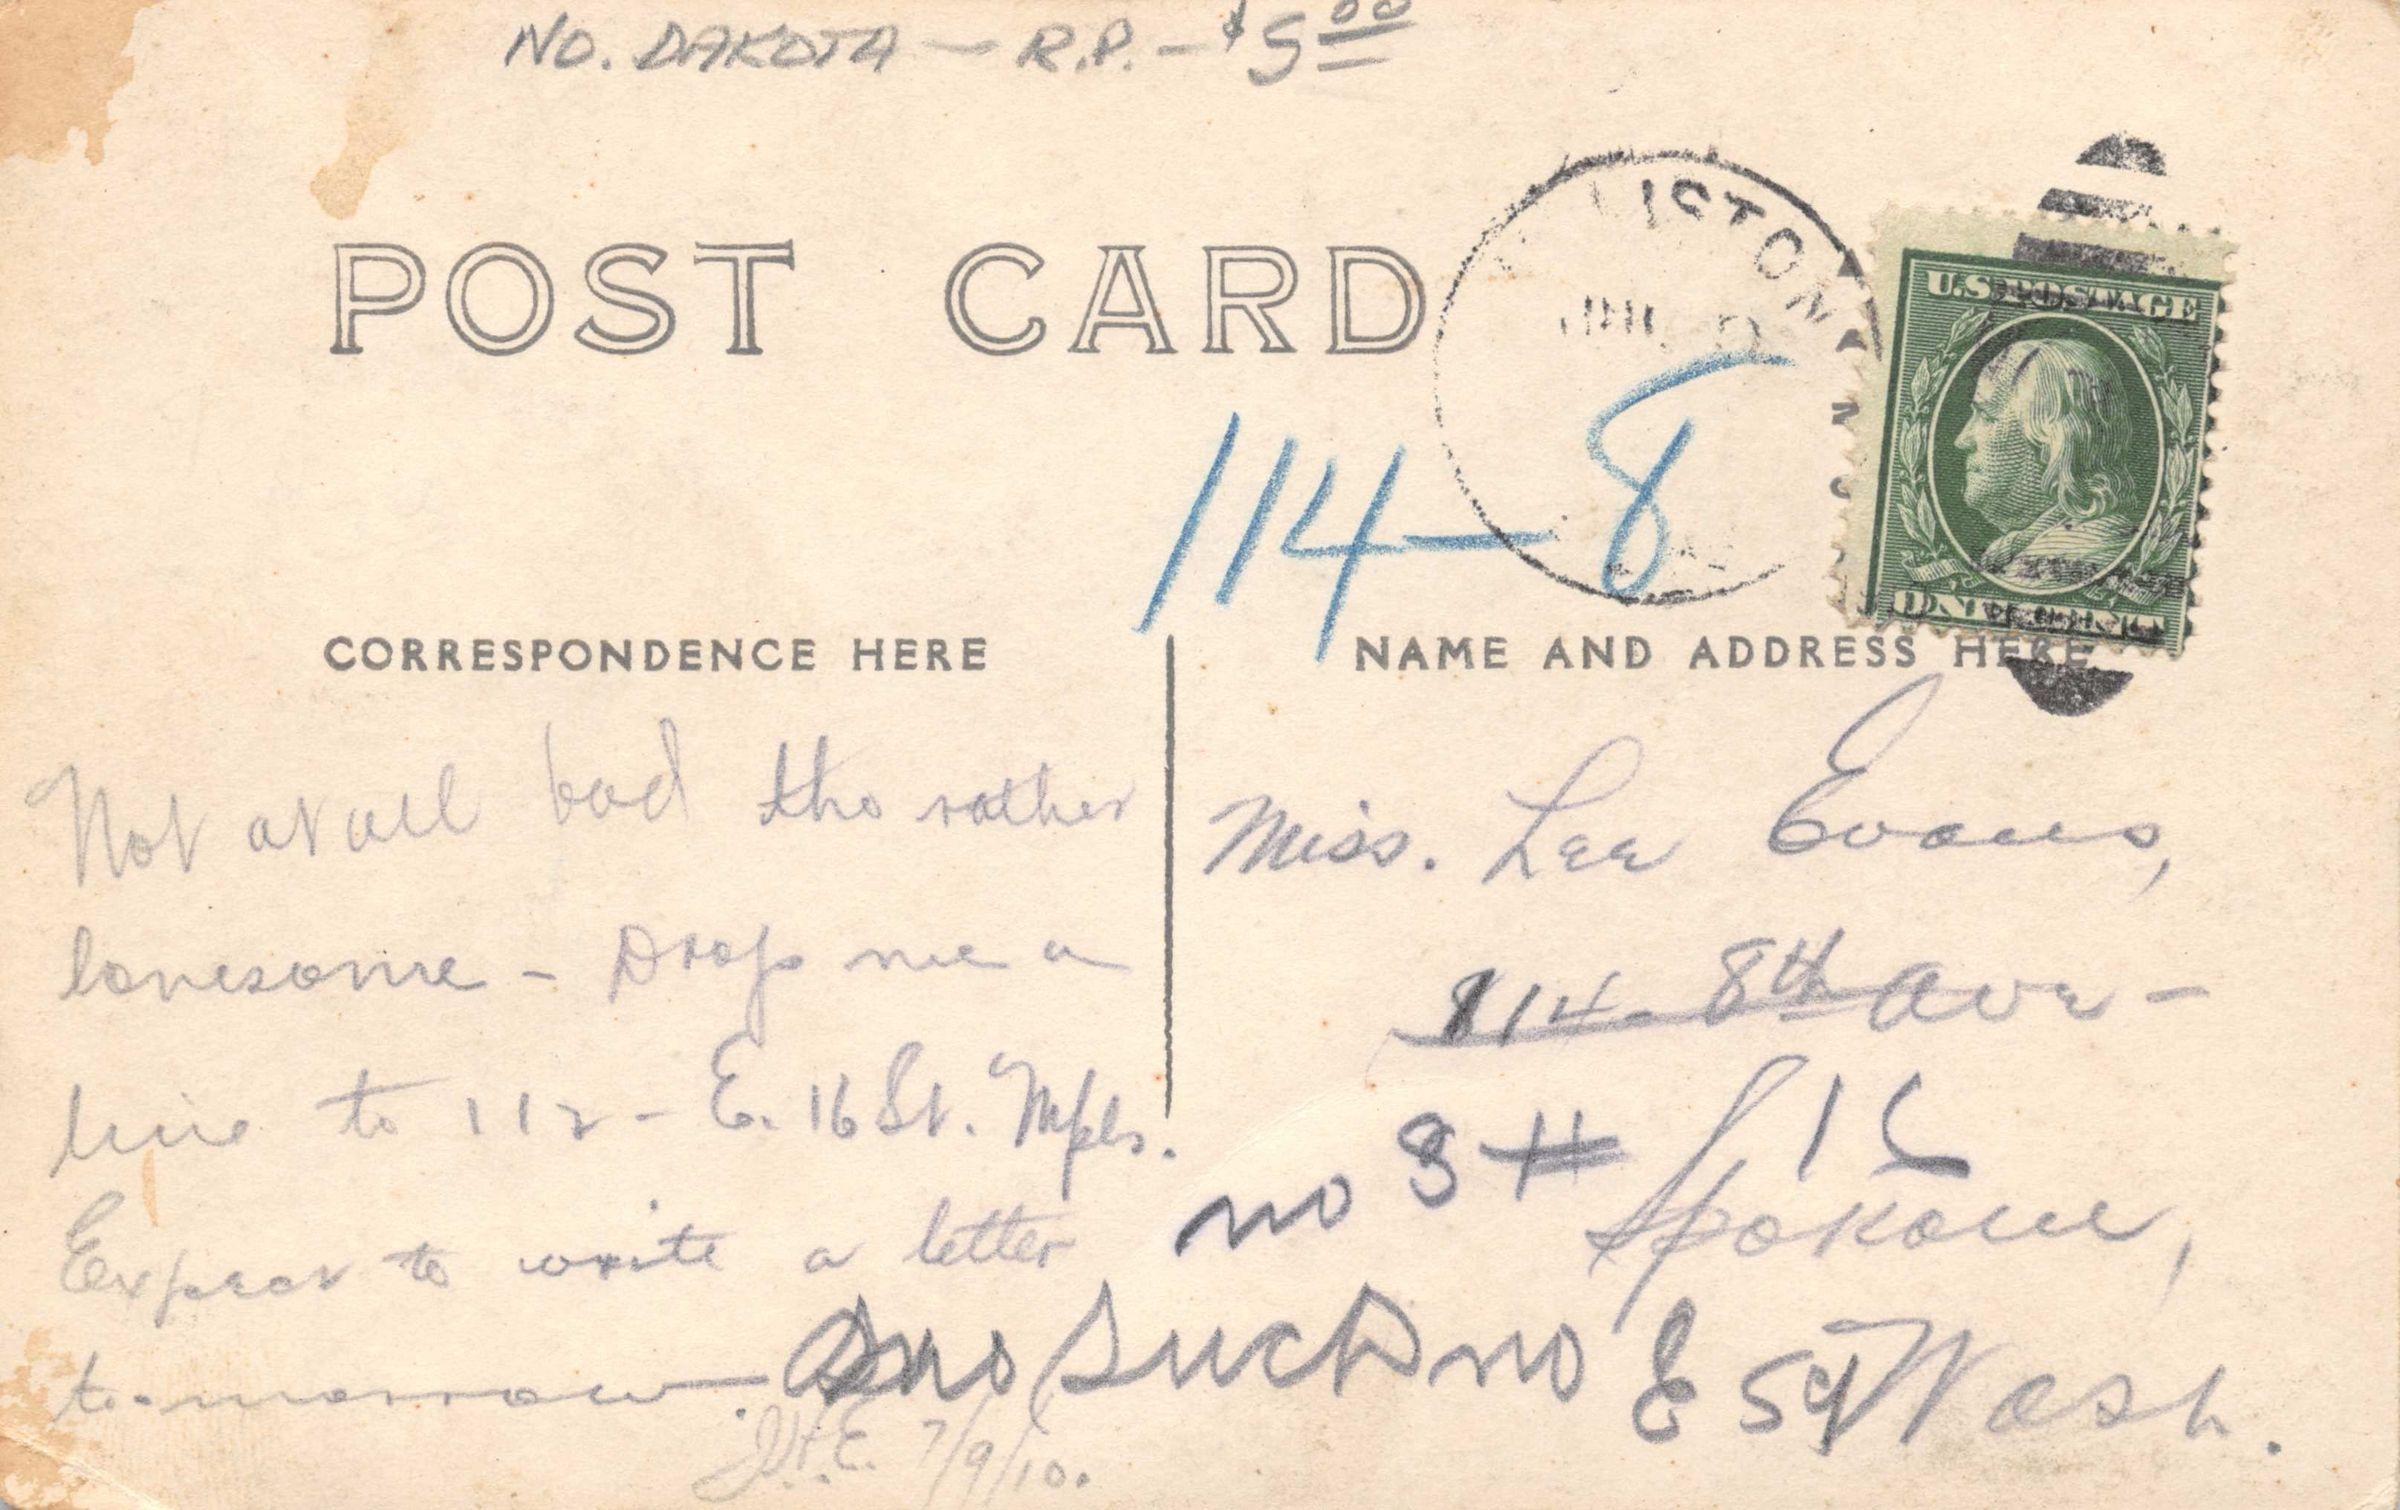 NO. DAKOTA - R.P. - $5.00
POST CARD
ISTON
U.S. POSTAGE
114-8
CORRESPONDENCE HERE
NAME AND ADDRESS HERE
Not at all bad tho rather
lonesome - Drop me a
line to 112 - E. 16 St. Mpls.
Expect to write a letter
to-morrow.
7/9/10.
Miss. Lee Evans,
814 - 8th Ave -
no 8 H
Spokane,
no Such no E 59
Wash.